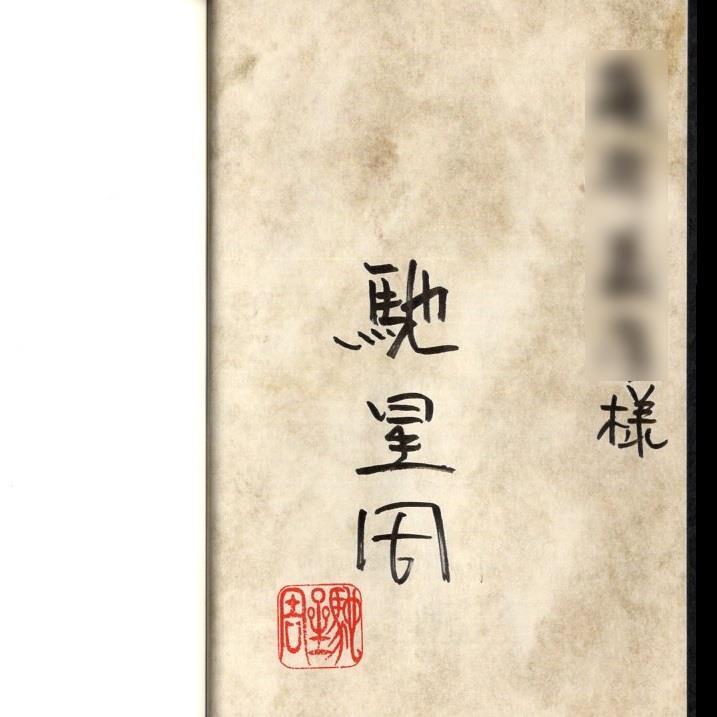 様
馳星周
馳星周